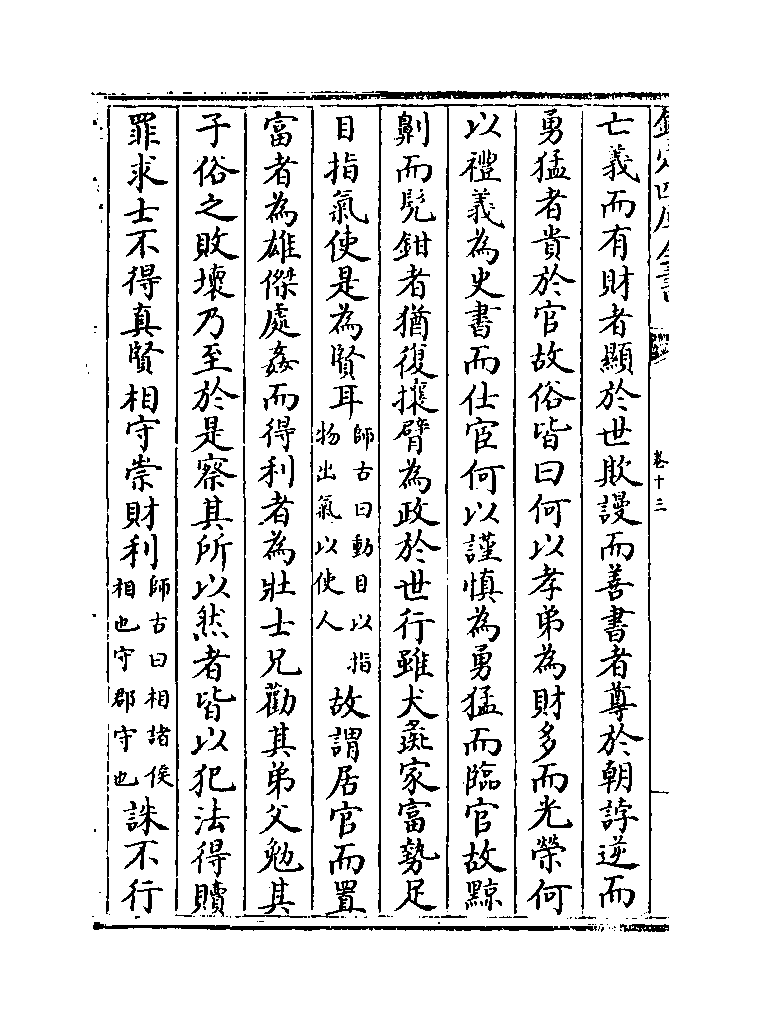 欽定四庫全書
卷十三
亡義而有財者顯於世欺謾而善書者尊於朝誖逆而
勇猛者貴於官故俗皆曰何以孝弟為財多而光榮何
以禮義為史書而仕宦何以謹慎為勇猛而臨官故黥
劓而髡鉗者猶復攘臂為政於世行雖犬彘家富勢足
目指氣使是為賢耳師古曰動目以指物出氣以使人故謂居官而置
富者為雄傑處姦而得利者為壯士兄勸其弟父勉其
子俗之敗壞乃至於是察其所以然者皆以犯法得贖
罪求士不得真賢相守崇財利師古曰相諸侯相也守郡守也誅不行